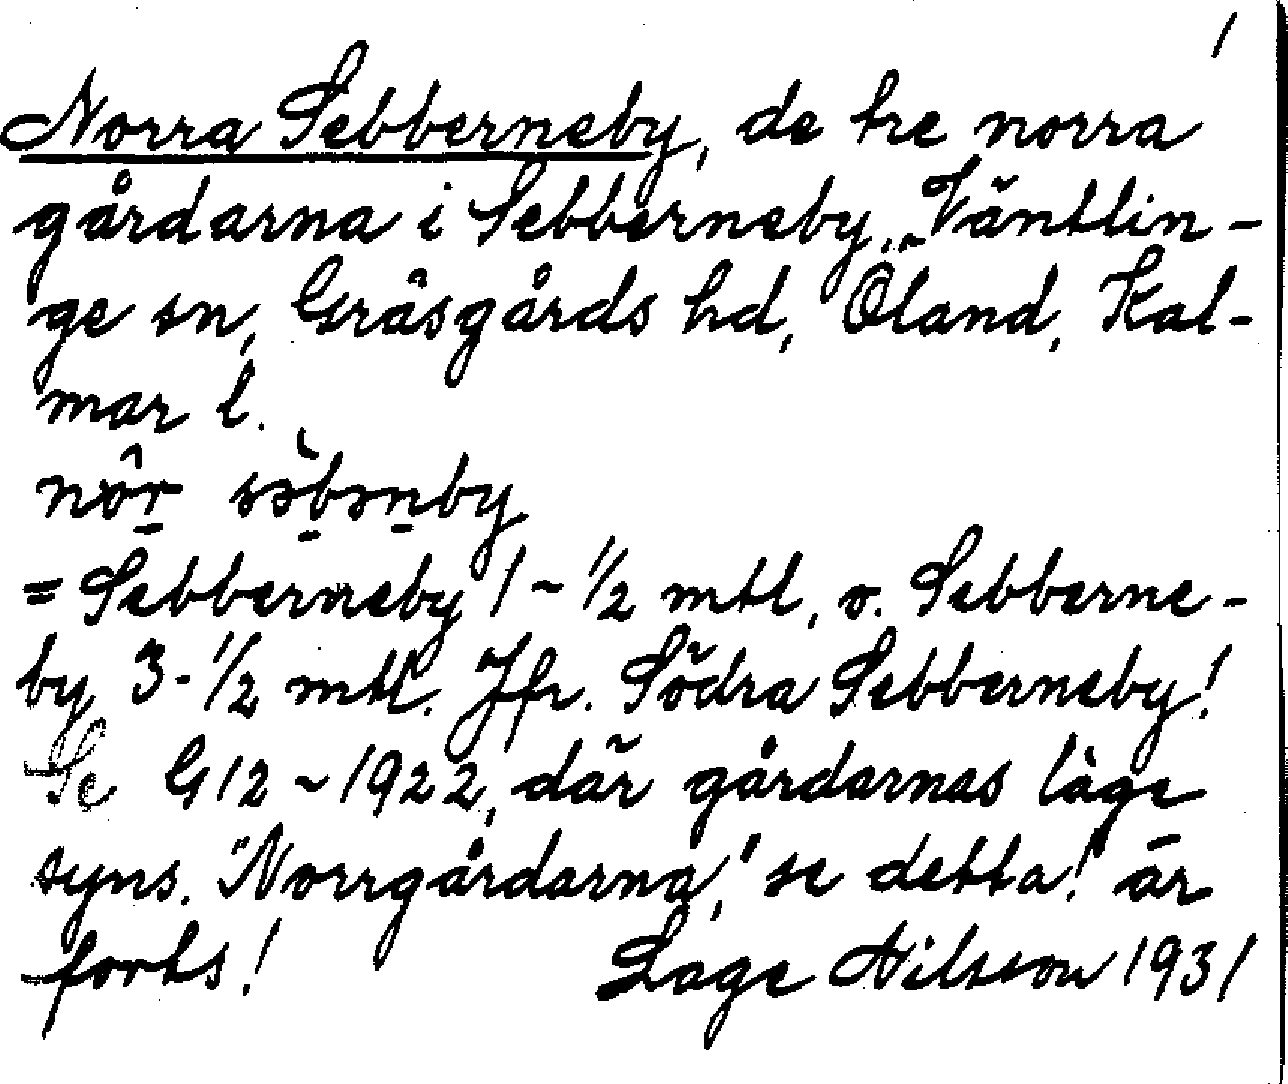 1
Norra Sebberneby, de tre norra
gårdarna i Sebberneby, Väntlin-
ge sn, Gräsgårds hd, Öland, Kal-
mar l.
= Sebberneby 1 ~ 1/2 mtl, o. Sebberne-
by 3 - 1/2 mtl. Jfr. Södra Sebberneby!
Se G12 ~ 1922, där gårdarnas läge
syns. "Norrgårdarna," se detta! är
forts! Lage Nilsson 1931